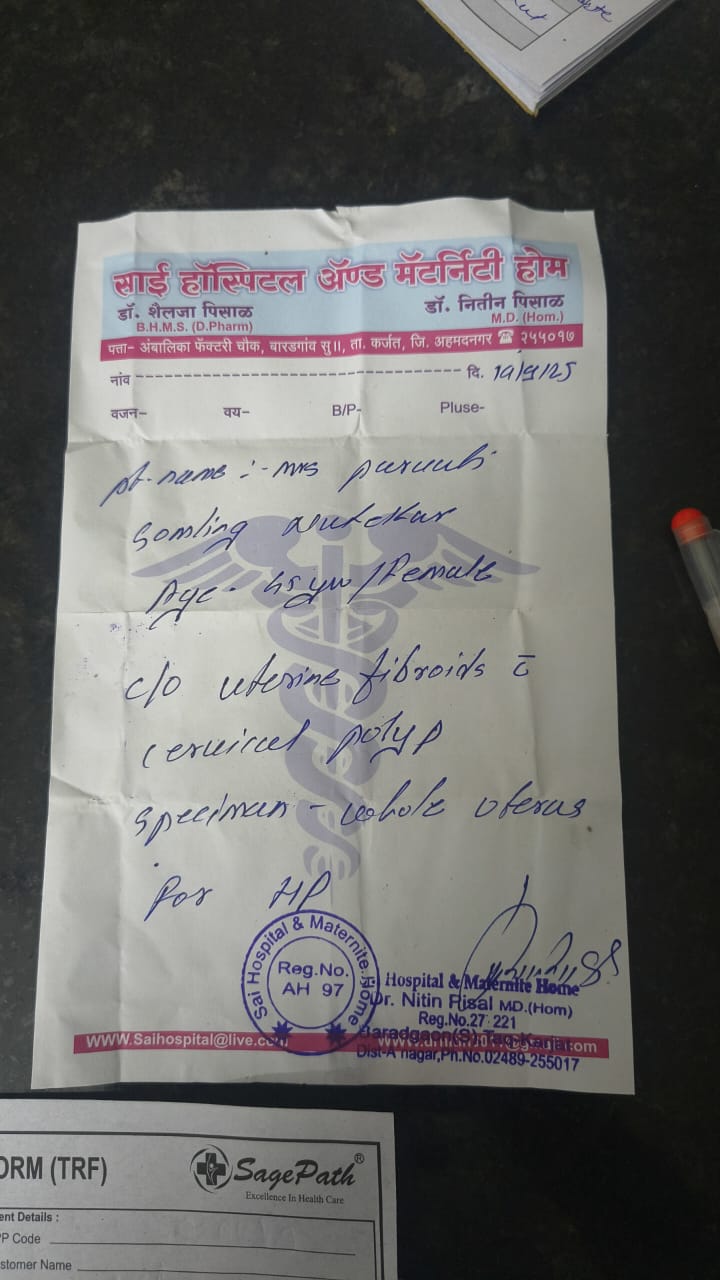 साई हॉस्पिटल ॲण्ड मॅटर्निटी होम
डॉ. शैलजा पिसाळ
B.H.M.S. (D.Pharm)
डॉ. नितीन पिसाळ
M.D. (Hom.)
पत्ता- अंबालिका फॅक्टरी चौक, बारडगांव सु॥, ता. कर्जत, जि. अहमदनगर ☎ २५५०१७
नांव
दि. 19/9/25
वजन- वय- B/P- Pluse-
pt. name :- Mrs
Somling
Age - 45 /Female
c/o uterine fibroids c̄
cervical polyp
specimen - whole uterus
For HP
Sai Hospital & Maternite Home
Reg.No.
AH 97
Hospital & Maternite Home
Dr. Nitin Pisal MD.(Hom)
Reg.No.27 221
Baradgaon(S), Taq-Karjat
Dist-A nagar,Ph.No.02489-255017
www.Saihospital@live.com
ORM (TRF)
SagePath®
Excellence In Health Care
ent Details :
PP Code
stomer Name